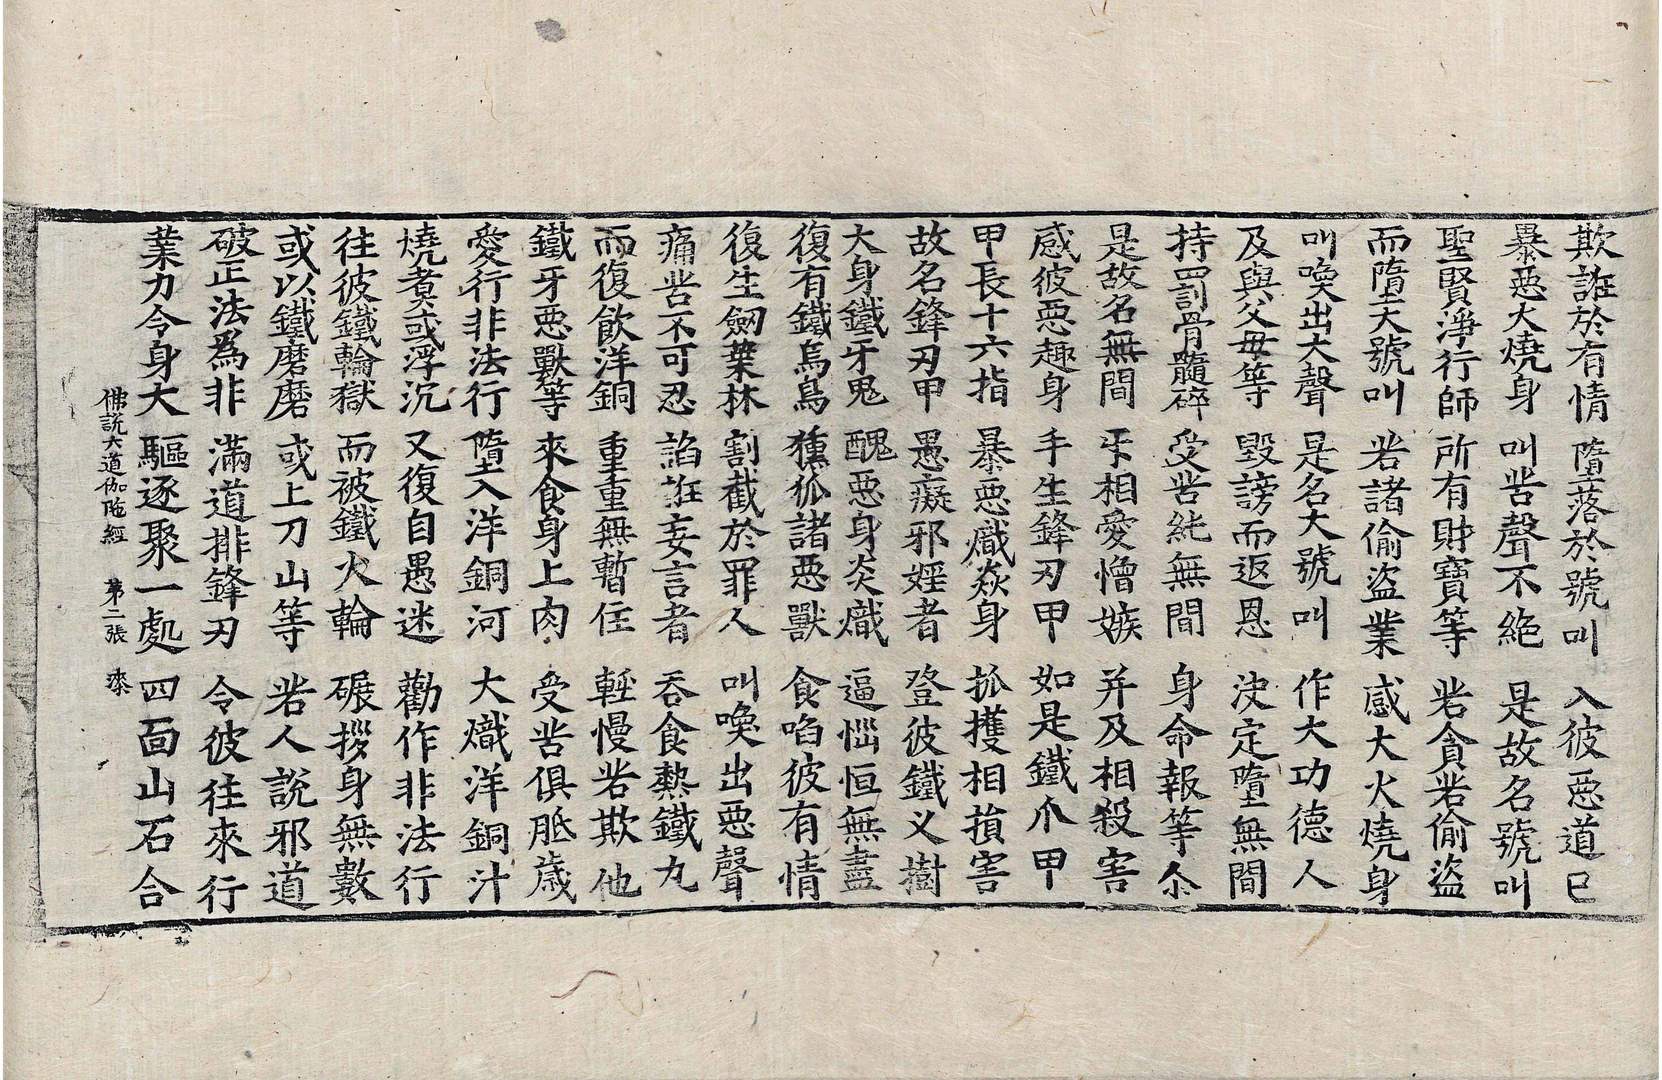 欺誑於有情 墮落於號叫 入彼惡道已
暴惡火燒身 叫苦聲不絕 是故名號叫
聖賢淨行師 所有財寶等 若貪若偷盜
而墮大號叫 若諸偷盜業 感大火燒身
叫喚出大聲 是名大號叫 作大功德人
及與父母等 毀謗而返恩 決定墮無間
持罰骨髓碎 受苦純無間 身命報等尒
是故名無間 㸦相愛憎嫉 并及相殺害
感彼惡趣身 手生鋒刃甲 如是鐵爪甲
甲長十六指 暴惡熾焱身 抓擭相損害
故名鋒刃甲 愚癡邪婬者 登彼鐵义樹
大身鐵牙鬼 醜惡身炎熾 逼惱恒無盡
復有鐵烏鳥 獯狐諸惡獸 食啗彼有情
復生劒葉林 割截於罪人 叫喚出惡聲
痛苦不可忍 諂誑妄言者 吞食熱鐵丸
而復飲洋銅 重重無暫住 輕慢若欺他
鐵牙惡獸等 來食身上肉 受苦俱胝歲
愛行非法行 墮入洋銅河 大熾洋銅汁
燒煑或浮沉 又復自愚迷 勸作非法行
往彼鐵輪獄 而被鐵火輪 碾拶身無數
或以鐵磨磨 或上刀山等 若人說邪道
破正法為非 滿道排鋒刃 令彼往來行
業力令身大 驅逐聚一處 四面山石合
佛說大道伽陁經 第二張 㯃